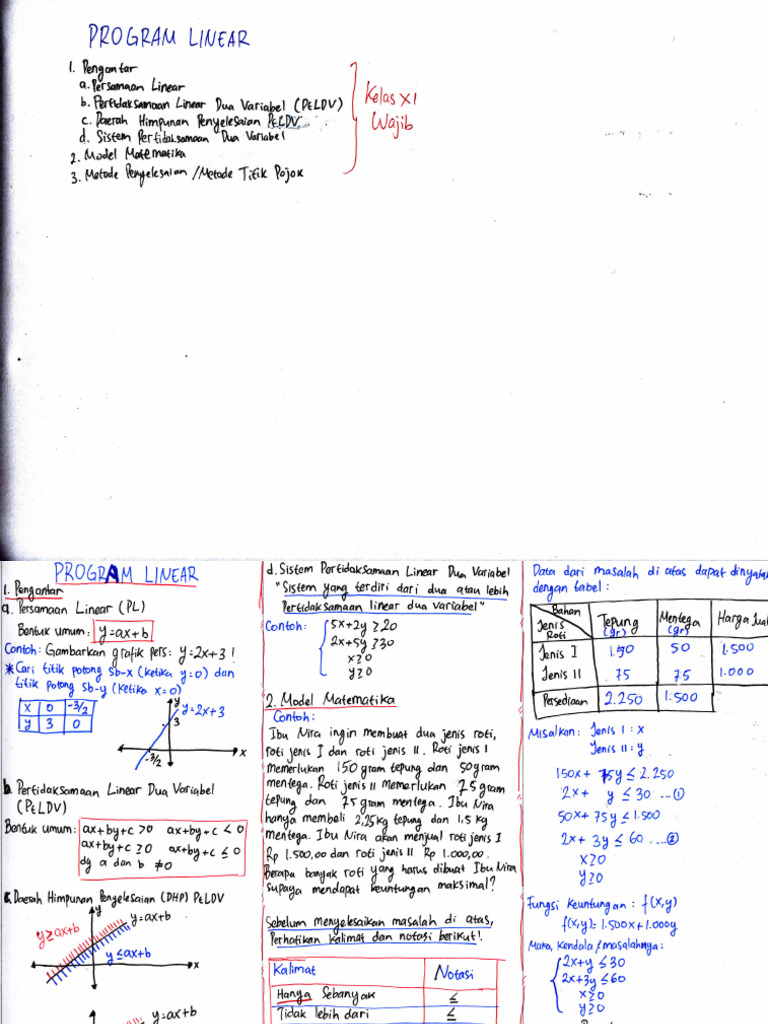 PROGRAM LINEAR
1. Pengantar
a. Persamaan Linear
b. Pertidaksamaan Linear Dua Variabel (PtLDV)
c. Daerah Himpunan Penyelesaian PtLDV
d. Sistem Pertidaksamaan Dua Variabel
2. Model Matematika
3. Metode Penyelesaian / Metode Titik Pojok
Kelas XI
Wajib
PROGRAM LINEAR
1. Pengantar
a. Persamaan Linear (PL)
Bentuk umum: y=ax+b
Contoh: Gambarkan grafik pers: y=2x+3!
* Cari titik potong sb-x (ketika y=0) dan
titik potong sb-y (ketika x=0)
x 0 -3/2
y 3 0
y
y=2x+3
3
-3/2
x
b. Pertidaksamaan Linear Dua Variabel
(PtLDV)
Bentuk umum: ax+by+c>0 ax+by+c<0
ax+by+c≥0 ax+by+c≤0
dg a dan b ≠0
c. Daerah Himpunan Penyelesaian (DHP) PtLDV
y
y=ax+b
y≥ax+b
y≤ax+b
x
y
y=ax+b
d. Sistem Pertidaksamaan Linear Dua Variabel
"Sistem yang terdiri dari dua atau lebih
Pertidaksamaan linear dua variabel"
Contoh: 5x+2y≥20
2x+5y≥30
x≥0
y≥0
2. Model Matematika
Contoh:
Ibu Nira ingin membuat dua jenis roti,
roti jenis I dan roti jenis II. Roti jenis I
memerlukan 150 gram tepung dan 50 gram
mentega. Roti jenis II memerlukan 75 gram
tepung dan 75 gram mentega. Ibu Nira
hanya membeli 2,25kg tepung dan 1,5 kg
mentega. Ibu Nira akan menjual roti jenis I
Rp 1.500,00 dan roti jenis II Rp 1.000,00.
Berapa banyak roti yang harus dibuat Ibu Nira
supaya mendapat keuntungan maksimal?
Sebelum menyelesaikan masalah di atas,
Perhatikan kalimat dan notasi berikut!
Kalimat Notasi
Hanya Sebanyak ≤
Tidak lebih dari ≤
Data dari masalah di atas dapat
dengan tabel:
Bahan
Jenis Roti
Tepung (gr) Mentega (gr) Harga
Jenis I 150 50 1.500
Jenis II 75 75 1.000
Persediaan 2.250 1.500
Misalkan: Jenis I : x
Jenis II : y
150x+ 75y≤2.250
2x+ y≤30 ...①
50x+75y≤1.500
2x+ 3y≤60 ...②
x≥0
y≥0
Fungsi Keuntungan : f(x,y)
f(x,y)=1.500x+1.000y
Maka, Kendala masalahnya:
2x+y≤30
2x+3y≤60
x≥0
y≥0